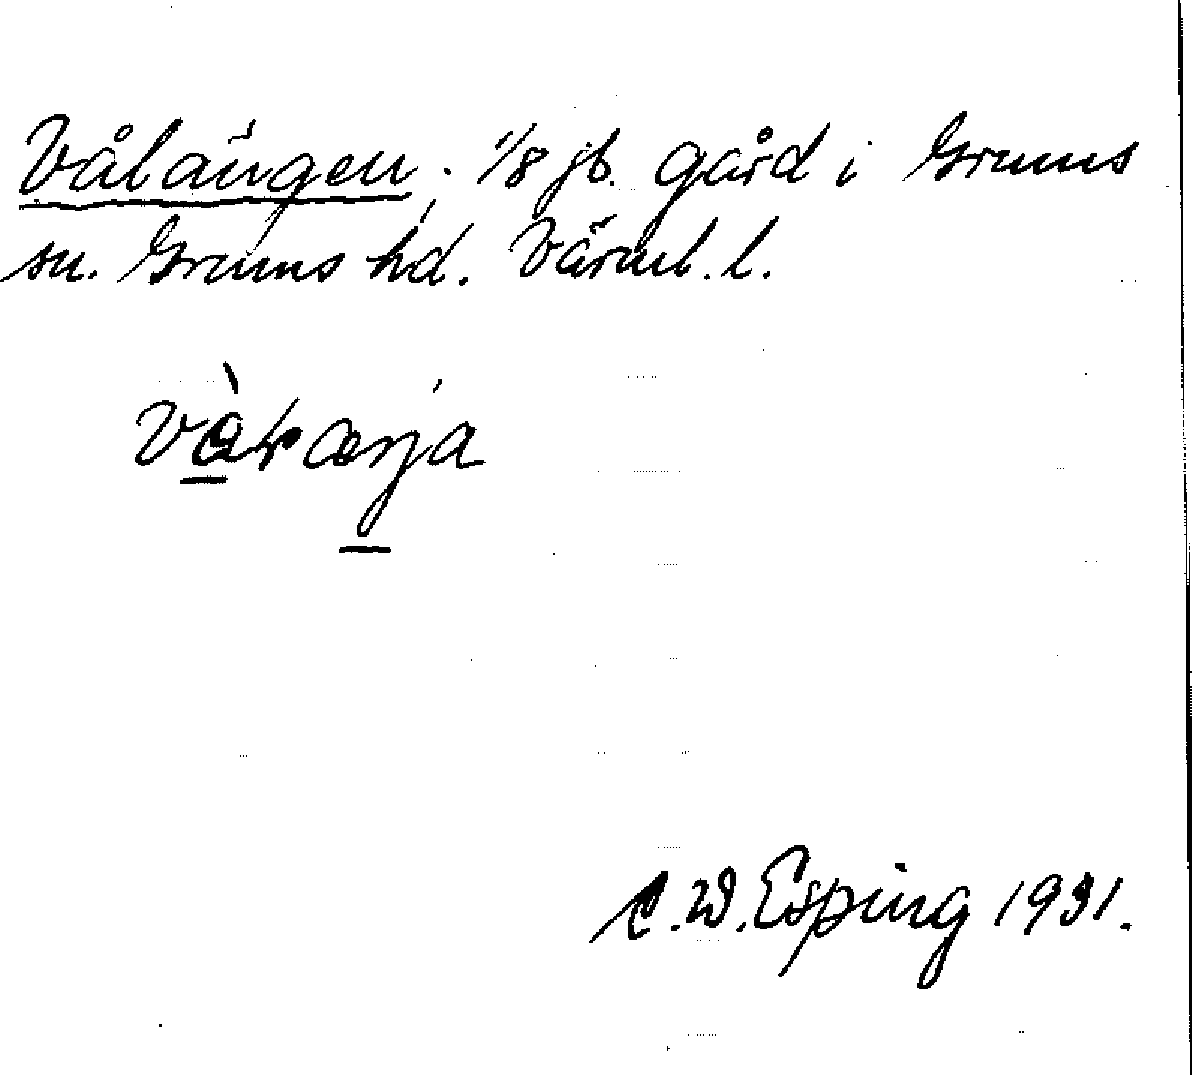 Vålängen, 1/8 jb. gård i Grums
sn. Grums hd. Värml. l.
C.W. Esping 1931.